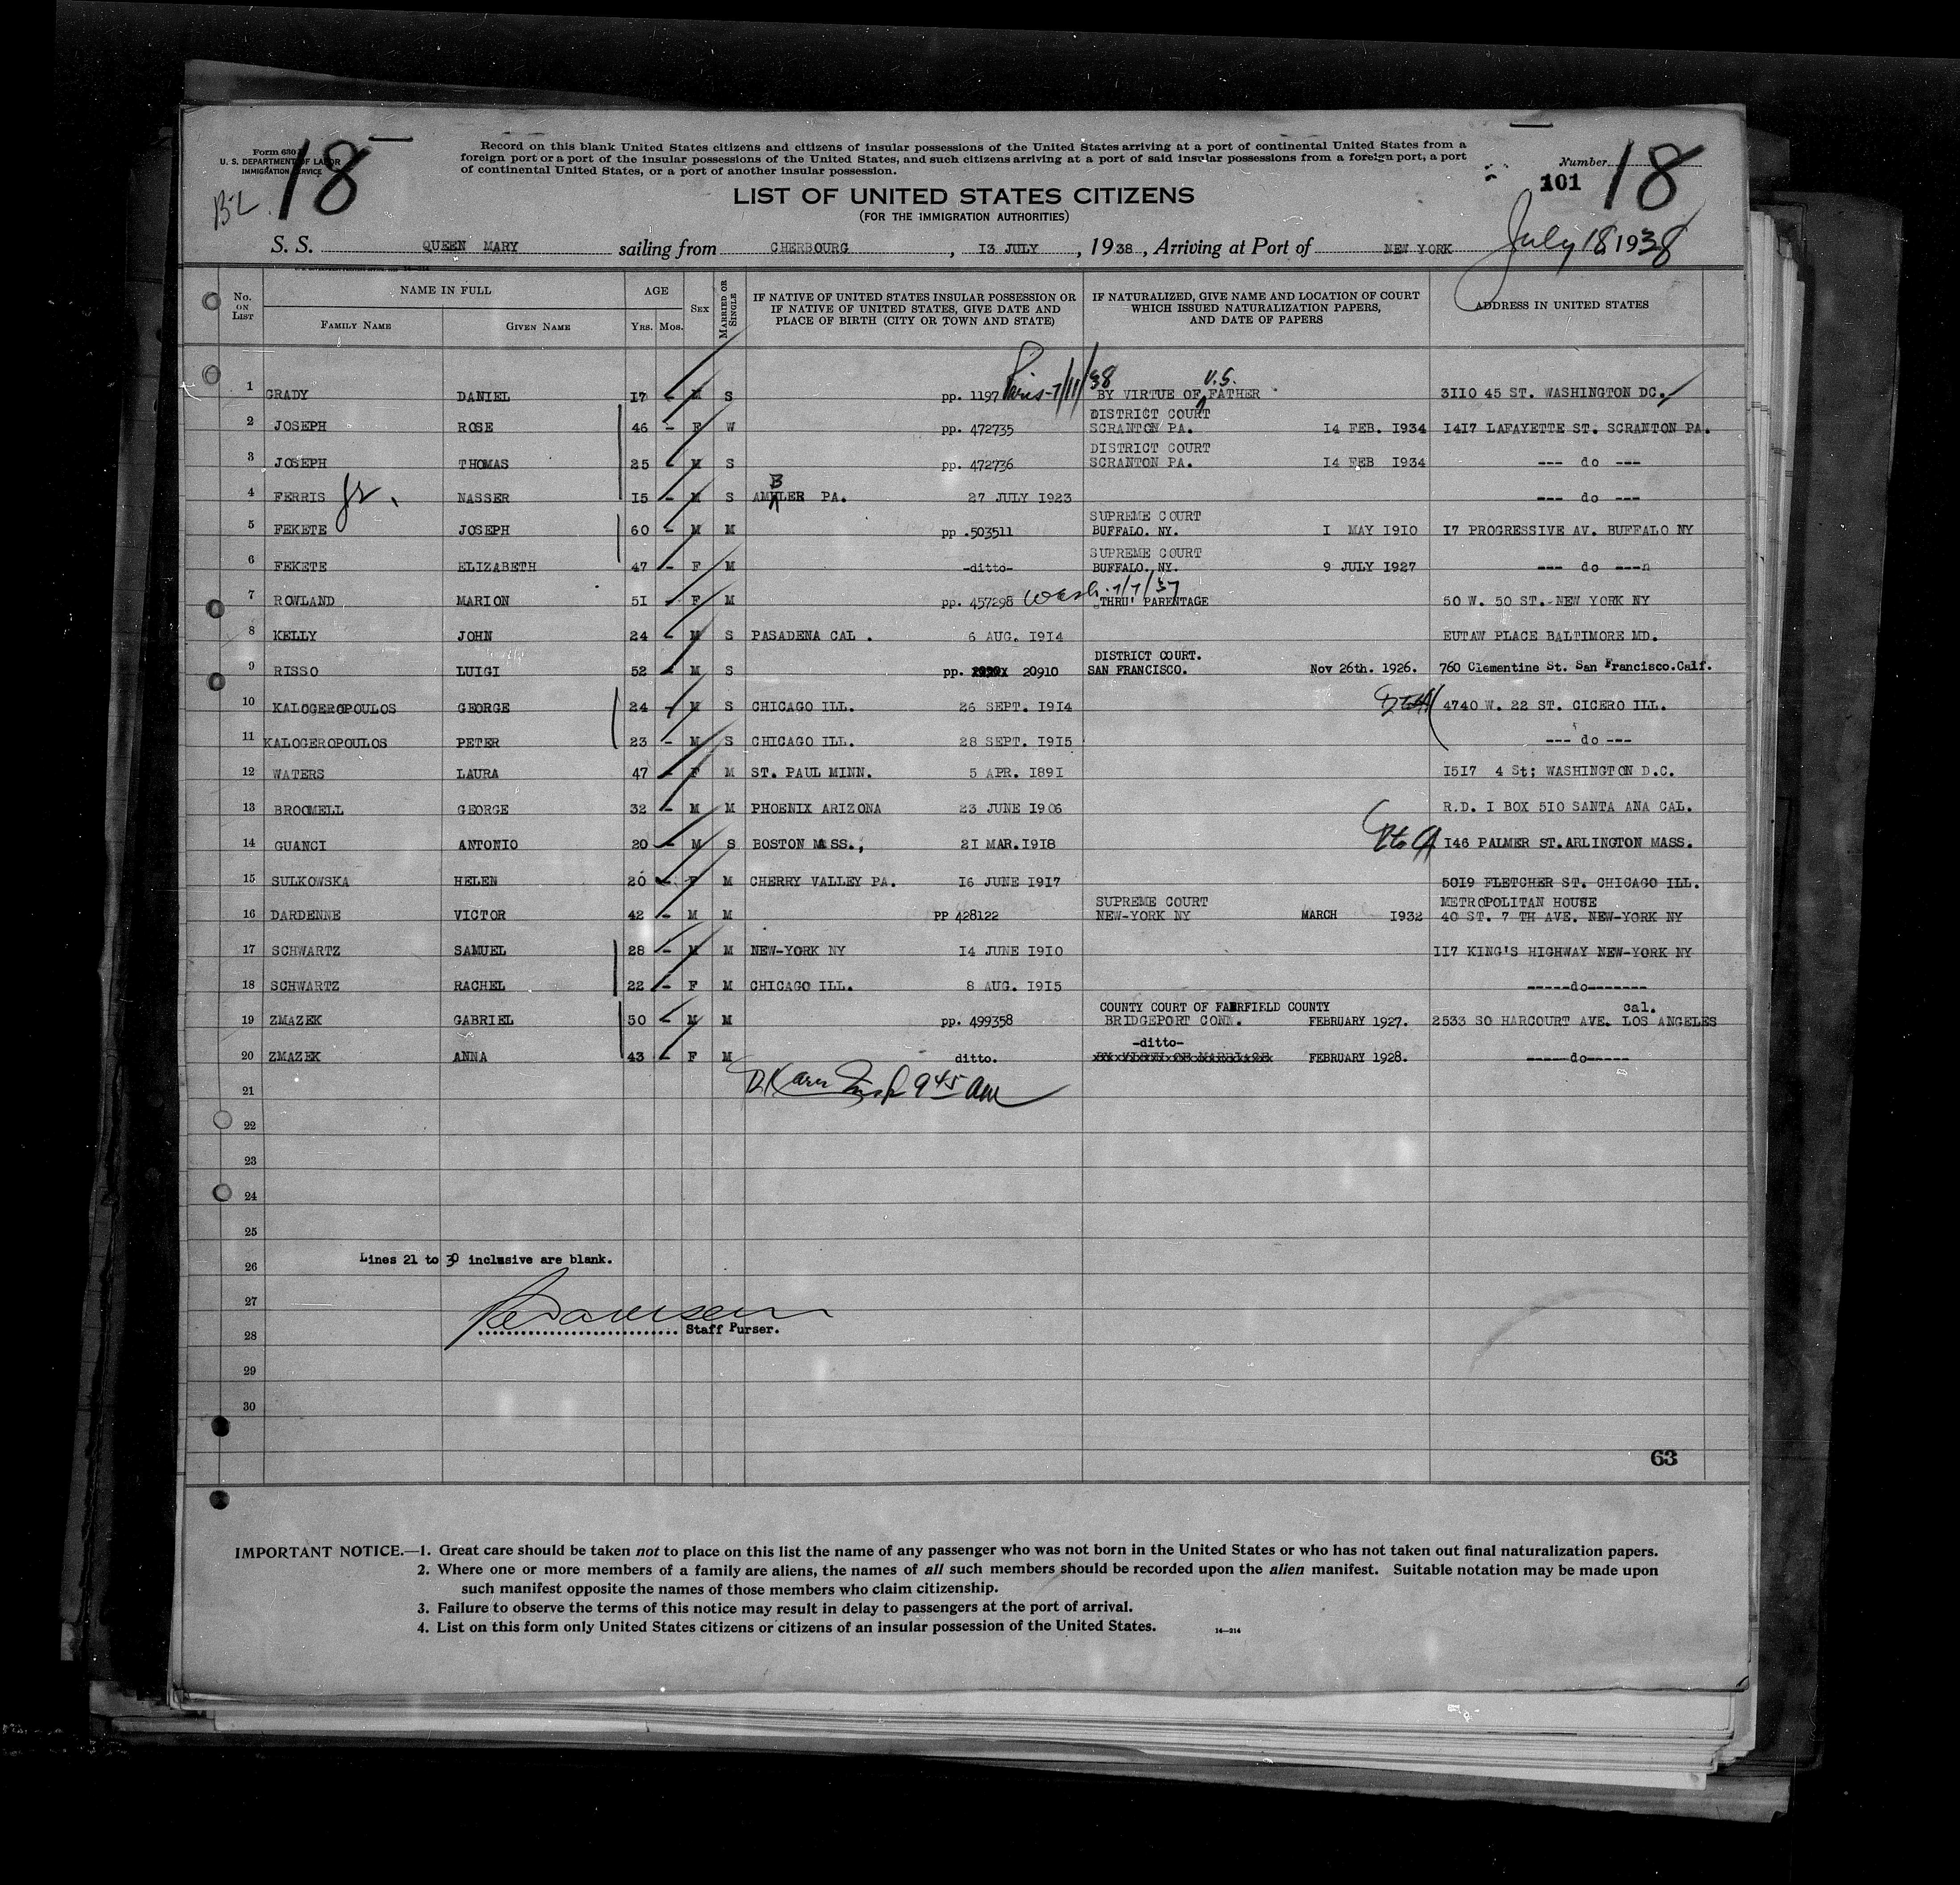 Form 630
U. S. DEPARTMENT OF LABOR
IMMIGRATION SERVICE
18
B-L
Record on this blank United States citizens and citizens of insular possessions of the United States arriving at a port of continental United States from a
foreign port or a port of the insular possessions of the United States, and such citizens arriving at a port of said insular possessions from a foreign port, a port
of continental United States, or a port of another insular possession.
Number 18
101
LIST OF UNITED STATES CITIZENS
(FOR THE IMMIGRATION AUTHORITIES)
S. S. QUEEN MARY sailing from CHERBOURG, 13 JULY, 1938, Arriving at Port of NEW YORK July 18 1938
No. ON LIST NAME IN FULL AGE SEX MARRIED OR SINGLE IF NATIVE OF UNITED STATES INSULAR POSSESSION OR IF NATIVE OF UNITED STATES, GIVE DATE AND PLACE OF BIRTH (CITY OR TOWN AND STATE) IF NATURALIZED, GIVE NAME AND LOCATION OF COURT WHICH ISSUED NATURALIZATION PAPERS, AND DATE OF PAPERS ADDRESS IN UNITED STATES
FAMILY NAME GIVEN NAME Yrs. Mos.
1 GRADY DANIEL 17 - M S pp. 1197 Paris-7/11/38 BY VIRTUE OF U.S. FATHER 3110 45 ST. WASHINGTON DC.
2 JOSEPH ROSE 46 - F W pp. 472735 DISTRICT COURT SCRANTON PA. 14 FEB. 1934 1417 LAFAYETTE ST. SCRANTON PA.
3 JOSEPH THOMAS 25 - M S pp. 472736 DISTRICT COURT SCRANTON PA. 14 FEB 1934 --- do ---
4 FERRIS Jr. NASSER 15 - M S AMBLER PA. 27 JULY 1923 --- do ---
5 FEKETE JOSEPH 60 - M M pp .503511 SUPREME COURT BUFFALO. NY. 1 MAY 1910 17 PROGRESSIVE AV. BUFFALO NY
6 FEKETE ELIZABETH 47 - F M -ditto- SUPREME COURT BUFFALO. NY. 9 JULY 1927 --- do ---n
7 ROWLAND MARION 51 - F M pp. 457298 Wash. 7/7/37 THRU' PARENTAGE 50 W. 50 ST. NEW YORK NY
8 KELLY JOHN 24 - M S PASADENA CAL . 6 AUG. 1914 EUTAW PLACE BALTIMORE MD.
9 RISSO LUIGI 52 - M S pp. 20910 DISTRICT COURT. SAN FRANCISCO. Nov 26th. 1926. 760 Clementine St. San Francisco.Calf.
10 KALOGEROPOULOS GEORGE 24 - M S CHICAGO ILL. 26 SEPT. 1914 4740 W. 22 ST. CICERO ILL.
11 KALOGEROPOULOS PETER 23 - M S CHICAGO ILL. 28 SEPT. 1915 --- do ---
12 WATERS LAURA 47 - F M ST. PAUL MINN. 5 APR. 1891 1517 4 St; WASHINGTON D.C.
13 BROOMELL GEORGE 32 - M M PHOENIX ARIZONA 23 JUNE 1906 R.D. I BOX 510 SANTA ANA CAL.
14 GUANCI ANTONIO 20 - M S BOSTON MASS., 21 MAR.1918 146 PALMER ST.ARLINGTON MASS.
15 SULKOWSKA HELEN 20 - F M CHERRY VALLEY PA. 16 JUNE 1917 5019 FLETCHER ST. CHICAGO ILL.
16 DARDENNE VICTOR 42 - M M PP 428122 SUPREME COURT NEW-YORK NY MARCH 1932 METROPOLITAN HOUSE 40 ST. 7 TH AVE. NEW-YORK NY
17 SCHWARTZ SAMUEL 28 - M M NEW-YORK NY 14 JUNE 1910 117 KING'S HIGHWAY NEW-YORK NY
18 SCHWARTZ RACHEL 22 - F M CHICAGO ILL. 8 AUG. 1915 -----do-------
19 ZMAZEK GABRIEL 50 - M M pp. 499358 COUNTY COURT OF FAIRFIELD COUNTY BRIDGEPORT CONN. FEBRUARY 1927. 2533 SO HARCOURT AVE. LOS ANGELES cal.
20 ZMAZEK ANNA 43 - F M ditto. -ditto- FEBRUARY 1928. -----do-----
21 9 45 am
22
23
24
25
26 Lines 21 to 30 inclusive are blank.
27
28 Staff Purser.
29
30
63
IMPORTANT NOTICE.—1. Great care should be taken not to place on this list the name of any passenger who was not born in the United States or who has not taken out final naturalization papers.
2. Where one or more members of a family are aliens, the names of all such members should be recorded upon the alien manifest. Suitable notation may be made upon
such manifest opposite the names of those members who claim citizenship.
3. Failure to observe the terms of this notice may result in delay to passengers at the port of arrival.
4. List on this form only United States citizens or citizens of an insular possession of the United States.
14—314